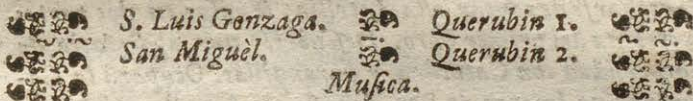 S. Luis Gonzaga. Querubin 1.
San Miguèl. Querubin 2.
Muſica.